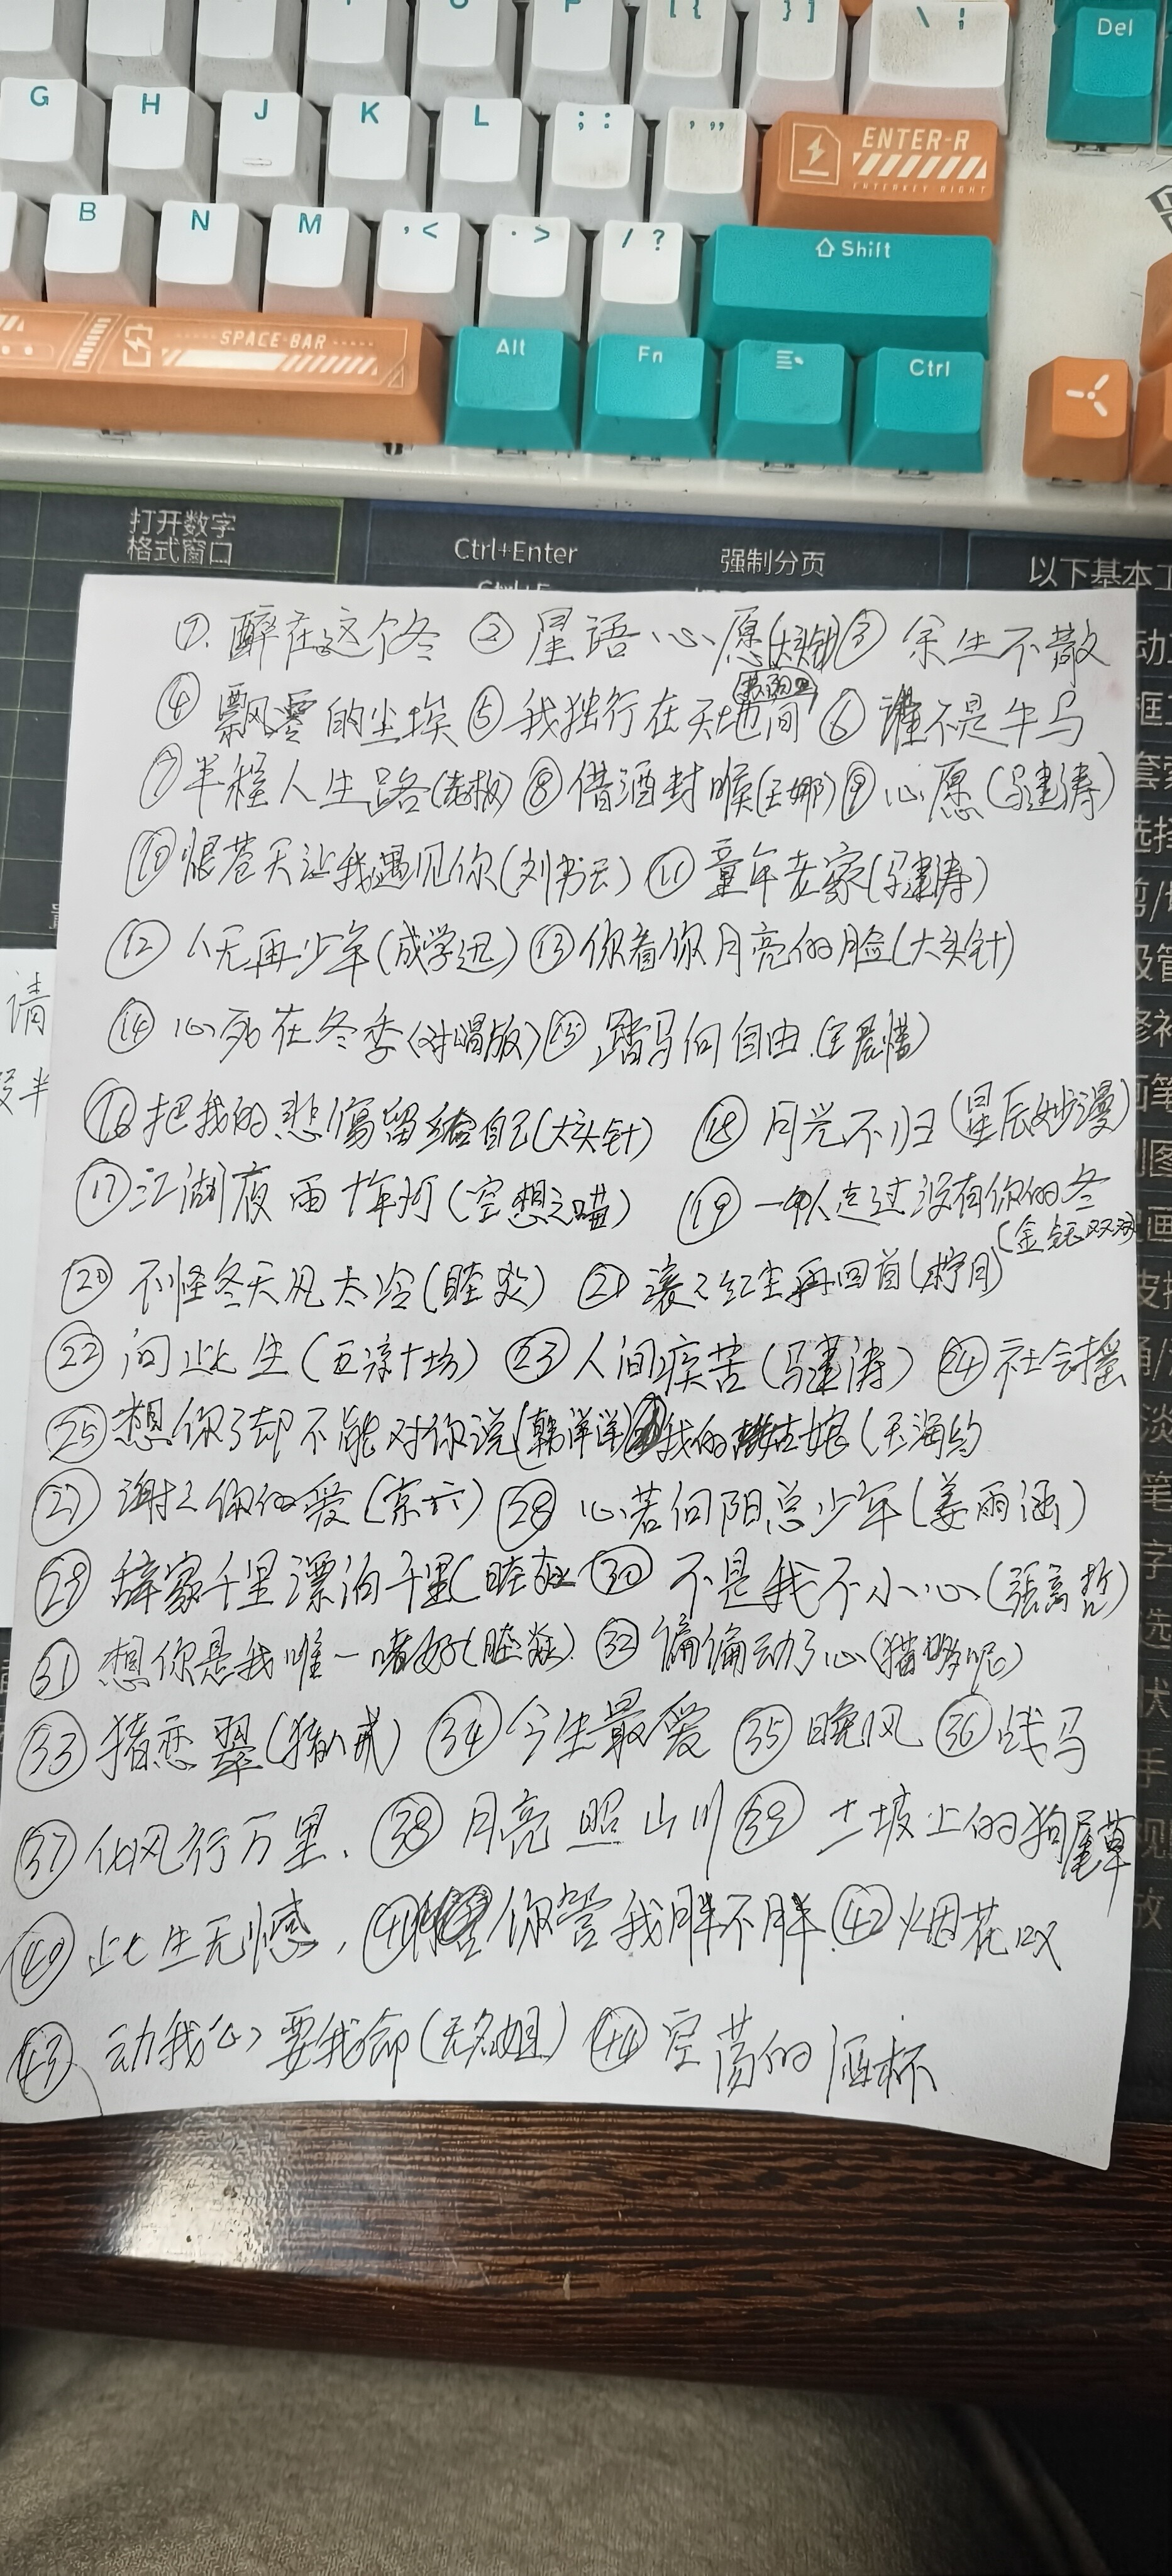 [ { } ] \ ¦ Del
G H J K L ; : ' " ENTER-R
ENTERKEY RIGHT
B N M , < . > / ? Shift
SPACE-BAR Alt Fn Ctrl
打开数字
格式窗口
Ctrl+Enter 强制分页 以下基本工
①.醉在这个冬 ② 星语心愿(大头针) ③ 余生不散
④ 飘零的尘埃 ⑤ 我独行在天地间 ⑥ 谁不是牛马
⑦ 半程人生路(老板) ⑧ 借酒封喉(王娜) ⑨ 心愿(马健涛)
⑩ 恨苍天让我遇见你(刘书云) ⑪ 童年老家(马健涛)
⑫ 人无再少年(成学迅) ⑬ 你看你月亮的脸(大头针)
⑭ 心死在冬季(对唱版) ⑮ 踏马向自由.
⑯ 把我的悲伤留给自己(大头针) ⑱ 月光不归(星辰妙漫)
⑰ 江湖夜雨十年河(空想之喵) ⑲ 一个人走过没有你的冬
⑳ 不怪冬天风太冷 ㉑ 滚滚红尘再回首(柠月)
㉒ 问此生(五凉十场) ㉓ 人间疾苦(马健涛) ㉔ 社会摇
㉕ 想你了却不能对你说(韩洋洋) 我的 姑娘(王海
㉗ 谢谢你的爱(京六) ㉘ 心若向阳总少年(姜雨涵)
㉙ 辞家千里漂泊千里( ㉚ 不是我不小心(张高哲)
㉛ 想你是我唯一嗜好( ㉜ 偏偏动了心(猫哆呢)
㉝ 猪恋翠(猪八戒) ㉞ 今生最爱 ㉟ 晚风 ㊱ 战马
㊲ 似风行万里. ㊳ 月亮照山川 ㊴ 土坡上的狗尾草
㊵ 此生无憾, ㊶ 你管我胖不胖 ㊷ 烟花叹
㊸ 动我心 要我命(无名姐) ㊹ 空荡的酒杯
请